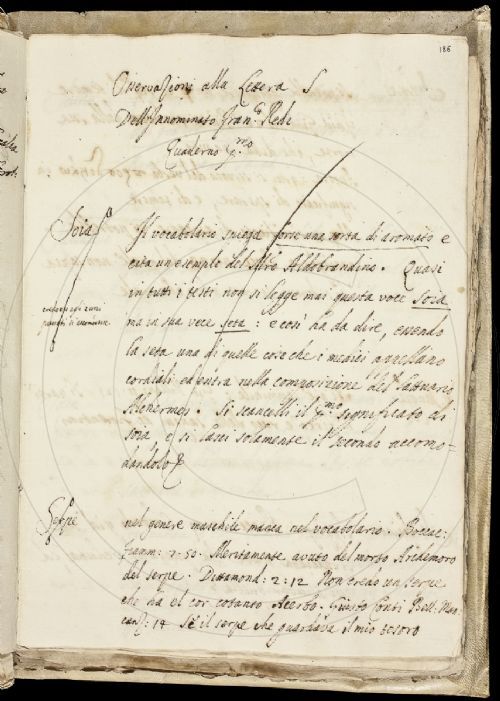 186
Osservazioni alla Lettera S
Dell'Innominato Fran.o Redi
Quaderno p.mo
Soia
Il vocabolario spiega forse una sorta di aromato e
cita un esempio del libro Aldobrandino. Quasi
in tutti i testi non si legge mai questa voce soia
ma in sua vece seta: e così ha da dire, essendo
la seta una di quelle cose che i medici appellano
cordiali ed entra nella composizione del lattuario
Alchermes. Si scancelli il p.mo significato di
soia e si lasci solamente il secondo accomo-
dandolo
Serpe
nel genere maschile manca nel vocabolario. Bocac:
Fiamm: 2.50. Meritamente avuto del morto Archemoro
del serpe. Dittamond: 2:12 Non credo un serpe
che ha el cor cotanto Acerbo. Giusto Conti Bell: Man
canz: 14 Sè il serpe che guardava il mio tesoro